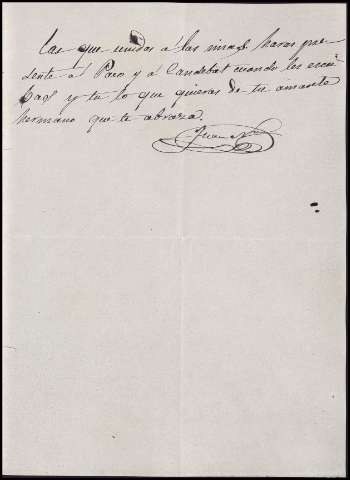 las que unidas a las mias haras pre
sente á Paco y á Candebat cuando les escri
bas y tu lo que quieras de tu amante
hermano que te abraza.
Juan